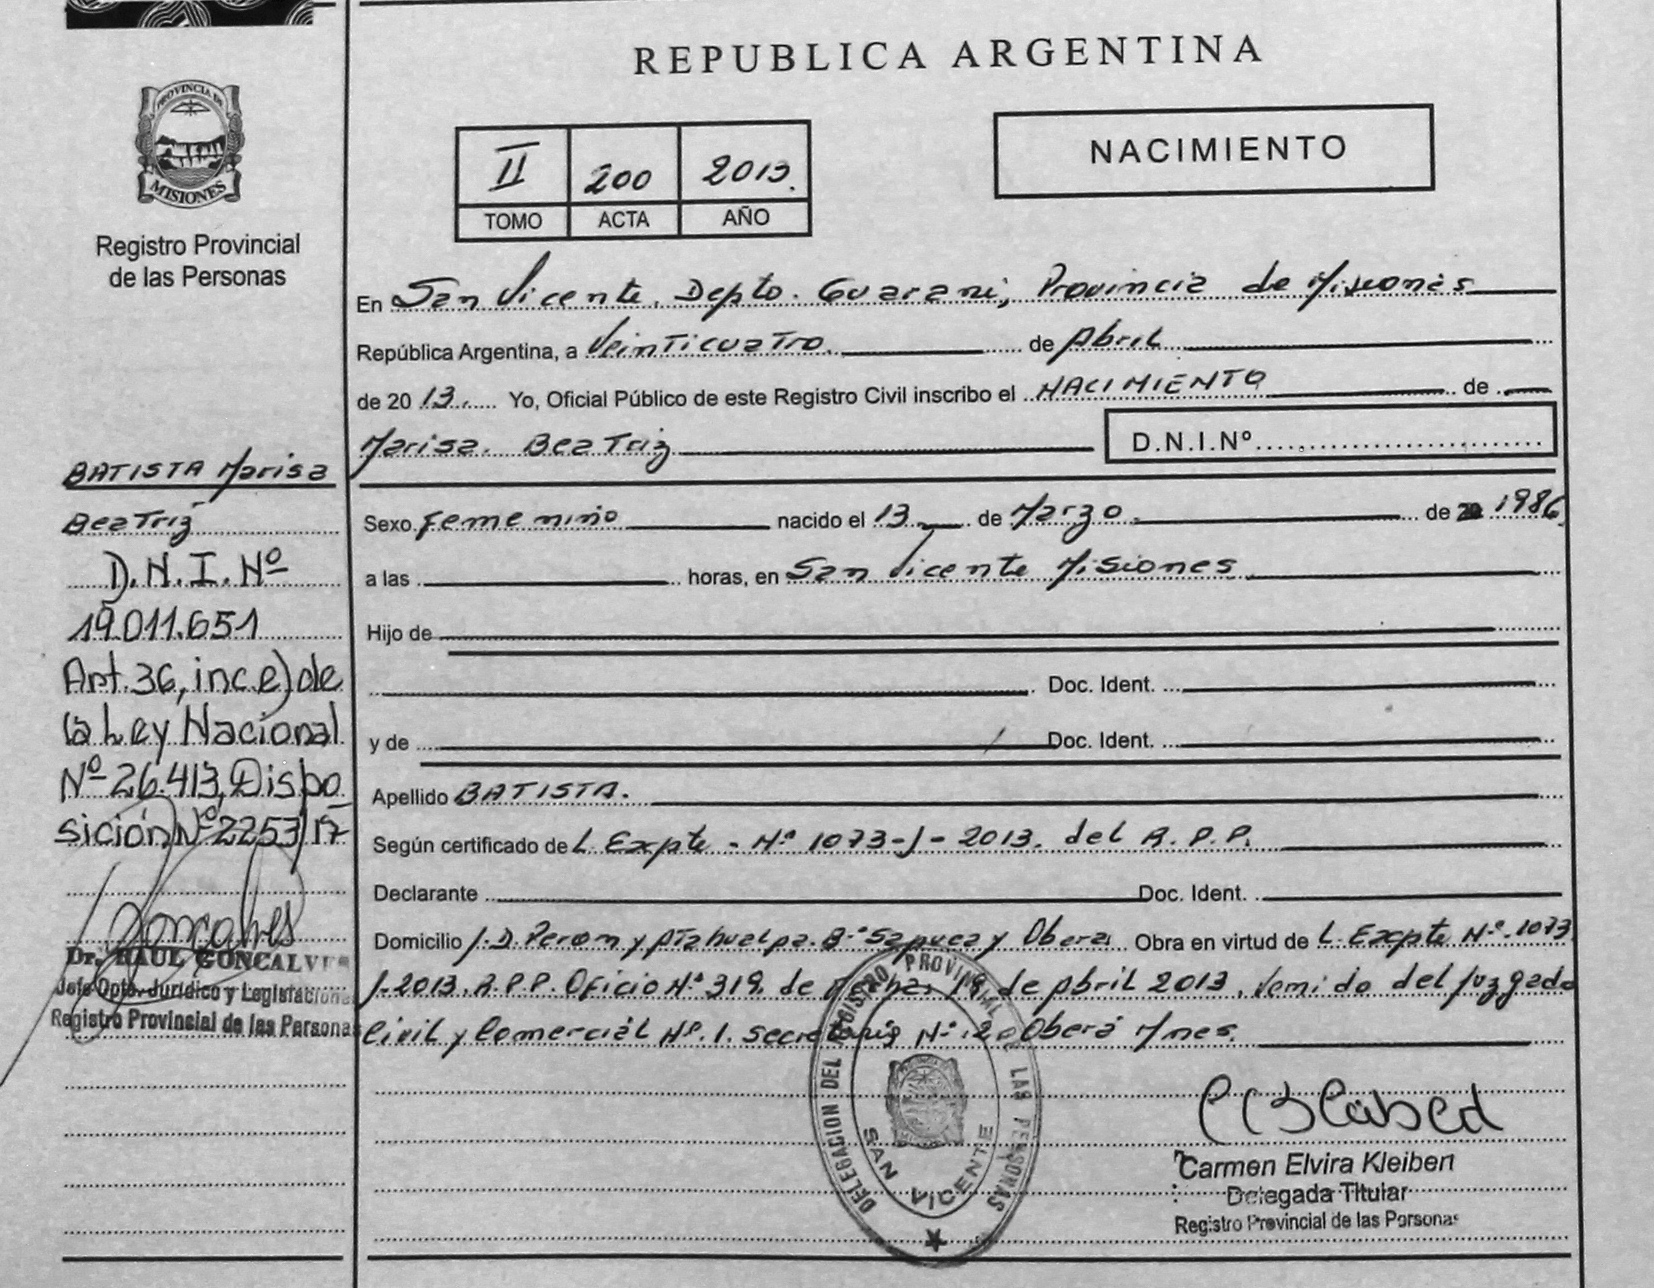 REPUBLICA ARGENTINA
PROVINCIA DE
MISIONES
Registro Provincial
de las Personas
II 200 2013.
TOMO ACTA AÑO
NACIMIENTO
En San Vicente, Depto. Guarani, Provincia de Misiones
República Argentina, a Veinticuatro. de Abril
de 20 13. Yo, Oficial Público de este Registro Civil inscribo el NACIMIENTO de
Marisa Beatriz
D.N.I.Nº
Sexo Femenino nacido el 13 de Marzo. de 20 1986
a las horas, en San Vicente Misiones
Hijo de
Doc. Ident.
y de Doc. Ident.
Apellido BATISTA.
Según certificado de L. Expte - Nº 1073-J-2013. del R.P.P.
Declarante Doc. Ident.
Domicilio J.D. Peron y Atahualpa Bº Sapucay Obera Obra en virtud de L. Expte Nº 1073
J-2013. R.P.P. Oficio Nº 319, de fecha 19 de Abril 2013, Venido del Juzgado
Civil y Comercial Nº 1. Secretaria Nº 2 Oberá Mnes.
BATISTA Marisa
Beatriz
D.N.I. Nº
19.011.651
Art. 36, inc.e) de
la Ley Nacional
Nº 26.413, Dispo
sición Nº 2253/17
Goncalves
Dr. RAUL GONCALVES
Jefe Dpto. Jurídico y Legislacion
Registro Provincial de las Personas
DELEGACION DEL REGISTRO PROVINCIAL DE LAS PERSONAS
SAN VICENTE
Carmen Elvira Kleiben
Delegada Titular
Registro Provincial de las Personas